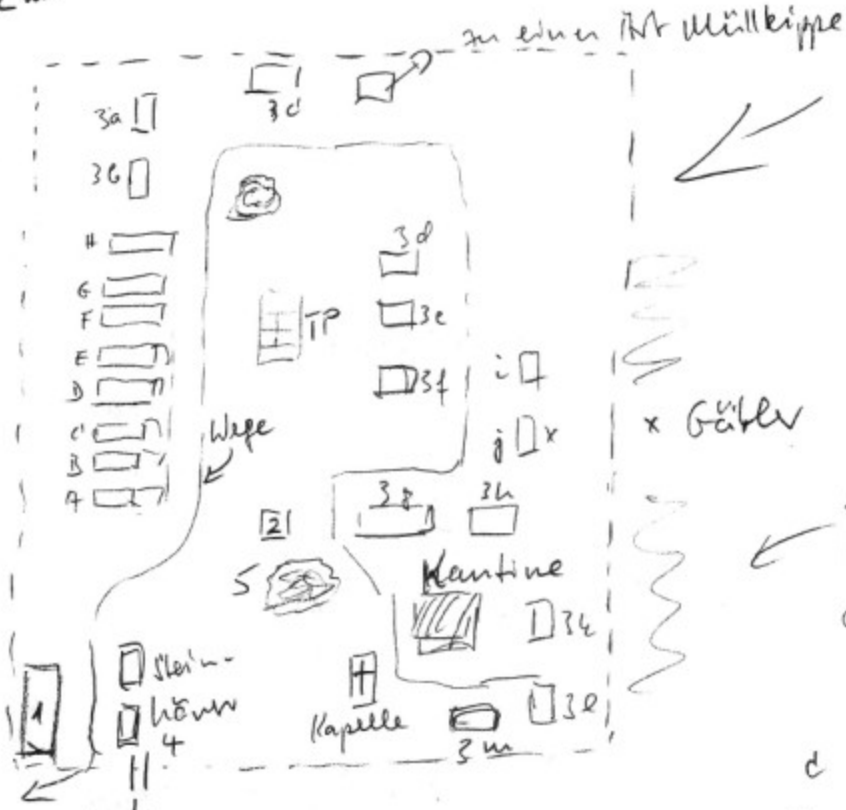 zu einer
Müllkippe
3a
3c
3b
H
G
F
E
D
C
B
A
TP
3d
3e
3f
i
j x
x Gäbler
Wege
2
3g
3h
5
Kantine
3k
1
Stein-
häuser
4
Kapelle
3l
3m
d